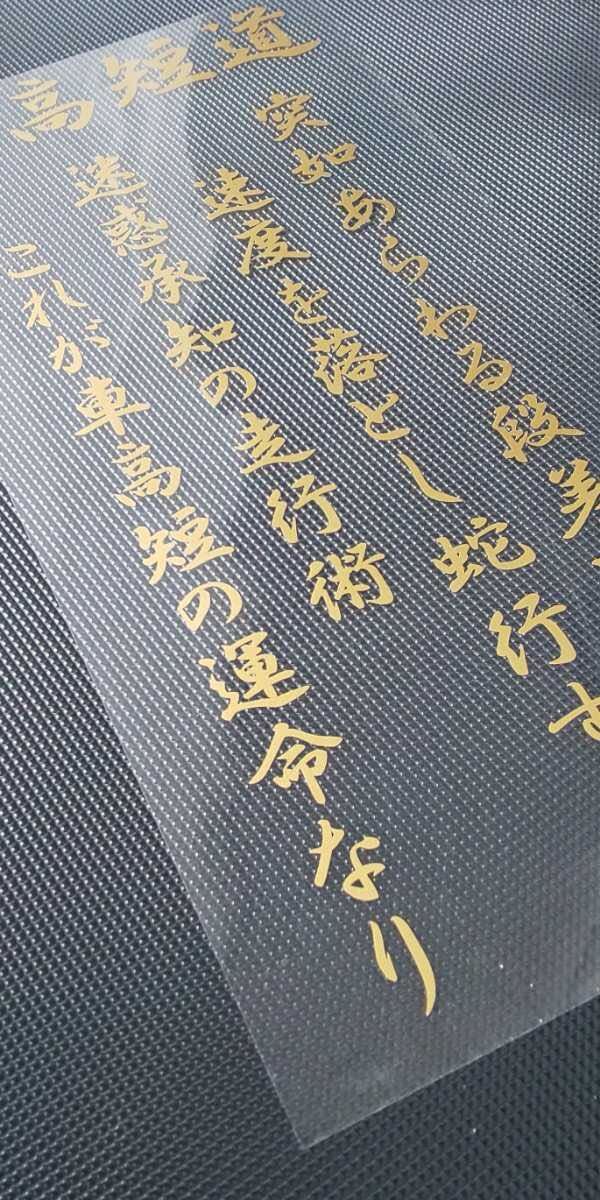 高短道
突如あらわる段差
速度を落とし蛇行せ
迷惑承知の走行術
これが車高短の運命なり